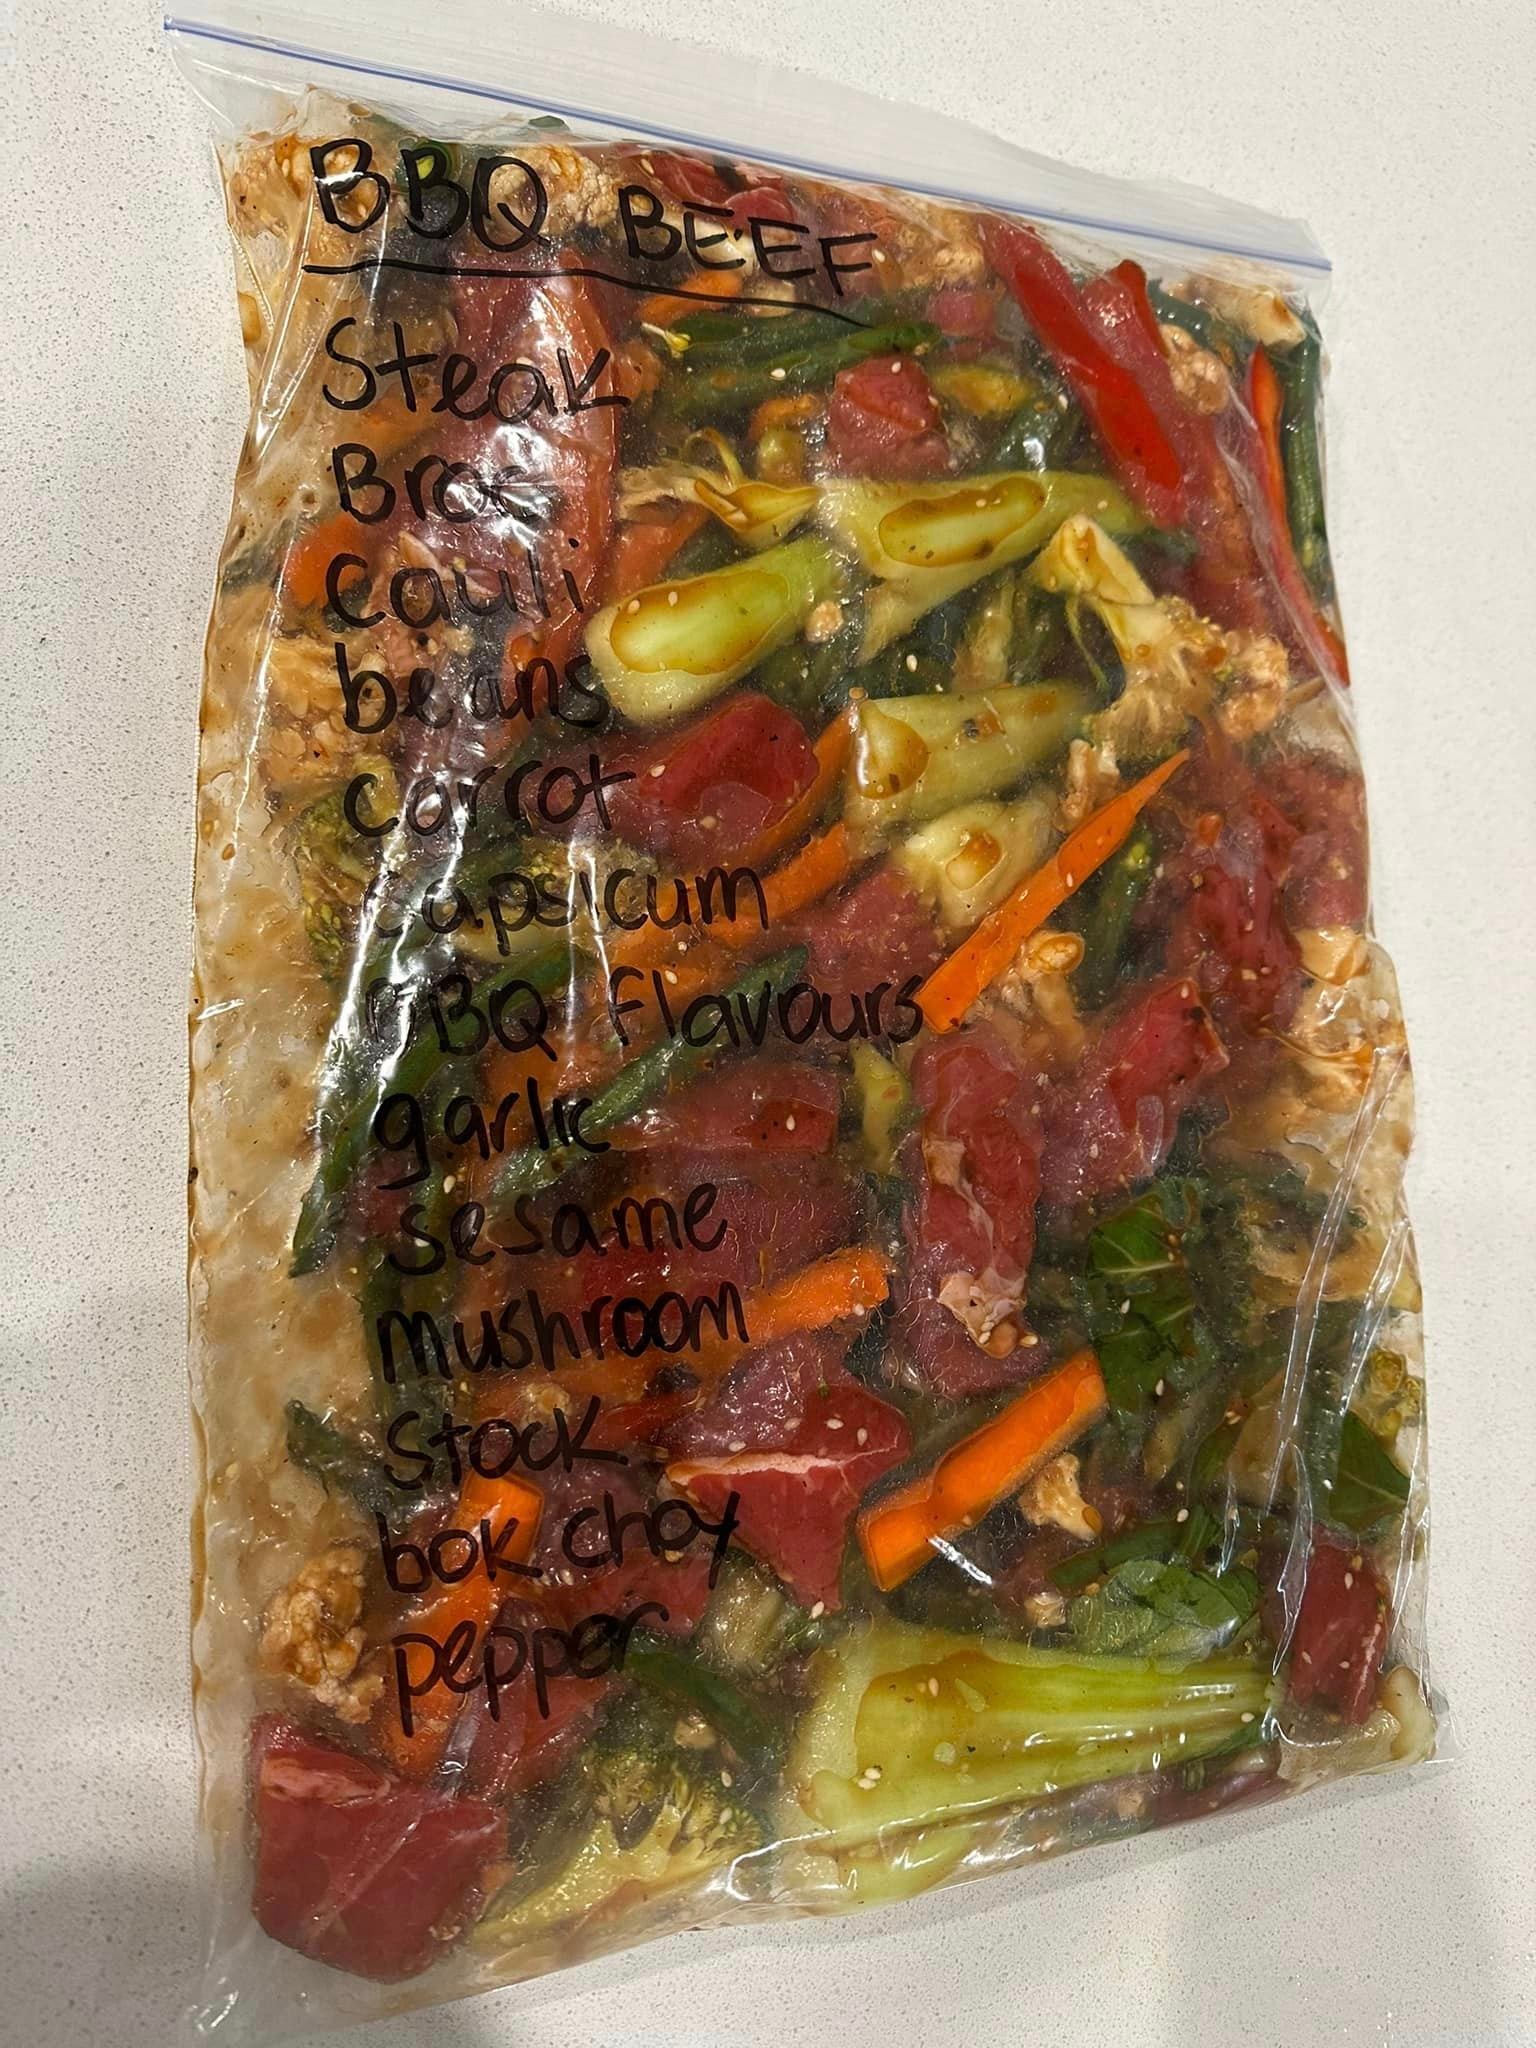 BBQ BEEF
Steak
Broc
cauli
beans
carrot
capsicum
BBQ flavours
garlic
sesame
mushroom
Stock
bok choy
pepper